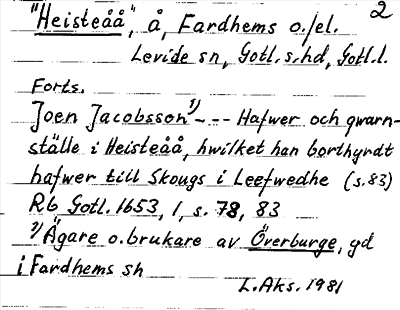 2
"Heisteåå", å, Fardhems o./el.
Levide sn, Gotl. s. hd, Gotl. l.
Forts.
Joen Jacobsson ¹) - - - Hafwer och qwarn-
ställe i Heisteåå, hwilket han borthyrdt
hafwer till Skougs i Leefwedhe (s. 83)
Rb Gotl. 1653, 1, s. 78, 83
¹) Ägare o. brukare av Överburge, gd
i Fardhems sn
L. Aks. 1981